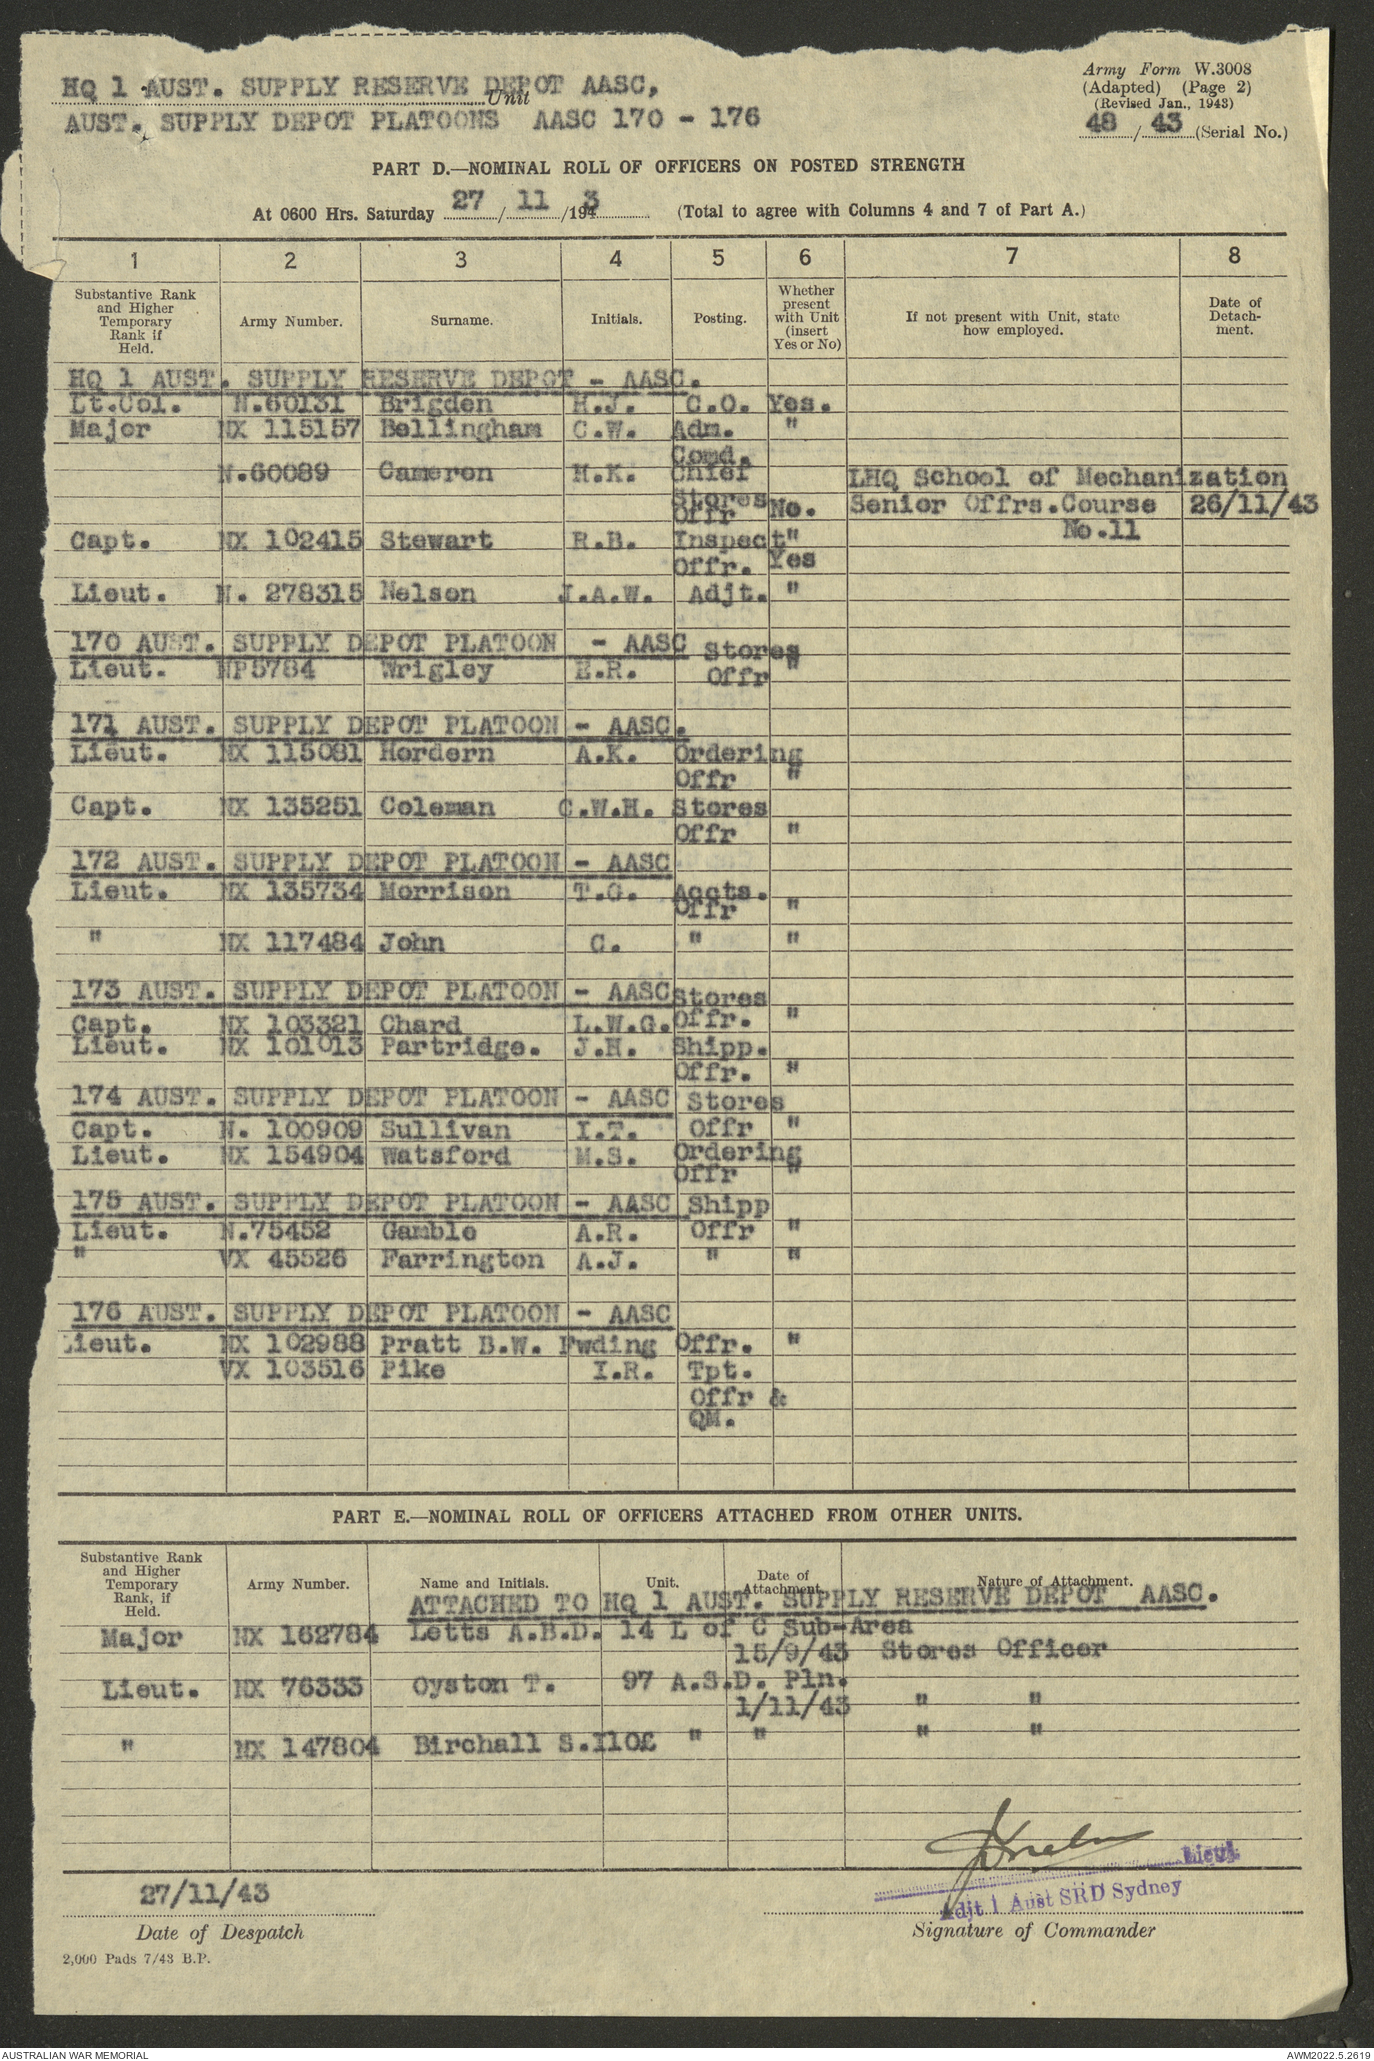 HQ 1 AUST. SUPPLY RESERVE DEPOT AASC,
Unit
AUST. SUPPLY DEPOT PLATOONS AASC 170 - 176
Army Form W.3008
(Adapted) (Page 2)
(Revised Jan., 1943)
48 / 43 (Serial No.)
PART D.—NOMINAL ROLL OF OFFICERS ON POSTED STRENGTH
At 0600 Hrs. Saturday 27 / 11 /1943 (Total to agree with Columns 4 and 7 of Part A.)
1 2 3 4 5 6 7 8
Substantive Rank and Higher Temporary Rank if Held. Army Number. Surname. Initials. Posting. Whether present with Unit (insert Yes or No) If not present with Unit, state how employed. Date of Detachment.
HQ 1 AUST. SUPPLY RESERVE DEPOT - AASC.
Lt.Col. N.60131 Brigden H.J. C.O. Yes.
Major NX 115157 Bellingham C.W. Adm. "
Comd.
N.60089 Cameron H.K. Chief LHQ School of Mechanization
Stores No. Senior Offrs.Course 26/11/43
Offr No.11
Capt. NX 102415 Stewart R.B. Inspect "
Offr. Yes
Lieut. N. 278315 Nelson J.A.W. Adjt. "
170 AUST. SUPPLY DEPOT PLATOON - AASC Stores
Lieut. NP5784 Wrigley E.R. Offr "
171 AUST. SUPPLY DEPOT PLATOON - AASC.
Lieut. NX 115081 Hordern A.K. Ordering
Offr "
Capt. NX 135251 Coleman C.W.H. Stores
Offr "
172 AUST. SUPPLY DEPOT PLATOON - AASC
Lieut. NX 135734 Morrison T.G. Accts.
Offr "
" NX 117484 John C. " "
173 AUST. SUPPLY DEPOT PLATOON - AASC Stores
Capt. NX 103321 Chard L.W.G. Offr. "
Lieut. NX 101013 Partridge. J.H. Shipp.
Offr. "
174 AUST. SUPPLY DEPOT PLATOON - AASC Stores
Capt. N. 100909 Sullivan I.T. Offr "
Lieut. NX 154904 Watsford M.S. Ordering
Offr "
175 AUST. SUPPLY DEPOT PLATOON - AASC Shipp
Lieut. N.75452 Gamble A.R. Offr "
" VX 45526 Farrington A.J. " "
176 AUST. SUPPLY DEPOT PLATOON - AASC
Lieut. NX 102988 Pratt B.W. Fwding Offr. "
VX 103516 Pike I.R. Tpt.
Offr &
QM.
PART E.—NOMINAL ROLL OF OFFICERS ATTACHED FROM OTHER UNITS.
Substantive Rank and Higher Temporary Rank, if Held. Army Number. Name and Initials. Unit. Date of Attachment. Nature of Attachment.
ATTACHED TO HQ 1 AUST. SUPPLY RESERVE DEPOT AASC.
Major NX 162784 Letts A.B.D. 14 L of C Sub-Area
15/9/43 Stores Officer
Lieut. NX 76333 Oyston T. 97 A.S.D. Pln.
1/11/43 " "
" NX 147804 Birchall S. " " " "
Lieut.
Adjt 1 Aust SRD Sydney
27/11/43
Date of Despatch
Signature of Commander
2,000 Pads 7/43 B.P.
AUSTRALIAN WAR MEMORIAL
AWM2022.5.2619